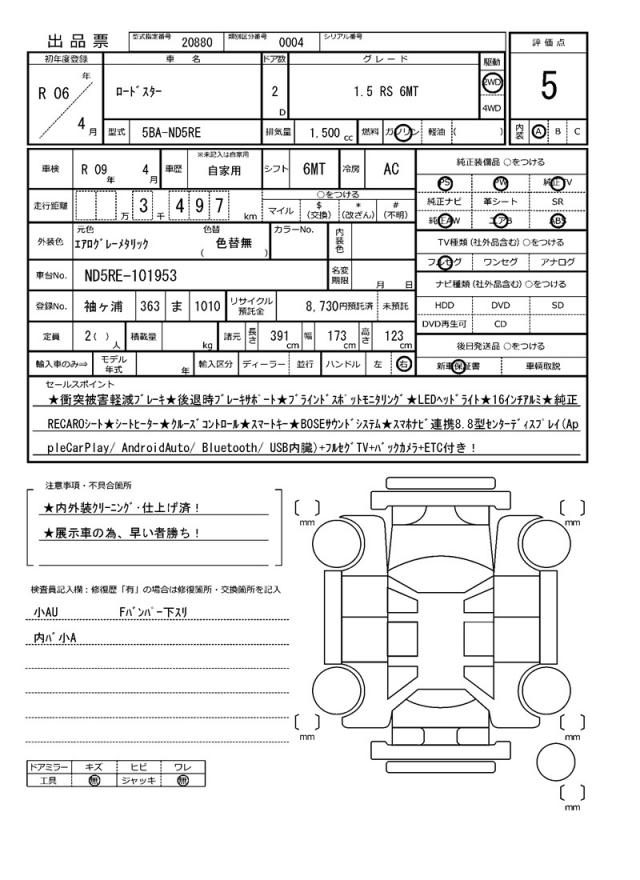 出品票
型式指定番号 20880 類別区分番号 0004 シリアル番号
初年度登録 車名 ドア数 グレード 駆動 評価点
R 06 年 4 月 ロードスター 2 D 1.5 RS 6MT 2WD 4WD 5
型式 5BA-ND5RE 排気量 1.500 cc 燃料 ガソリン 軽油 ( ) 内装 A B C
車検 R 09 年 4 月 車歴 ※未記入は自家用 自家用 シフト 6MT 冷房 AC 純正装備品 ○をつける
PS PW 純正TV
走行距離 万 3 千 4 9 7 km ○をつける マイル $ (交換) * (改ざん) # (不明)
純正ナビ 革シート SR
純正AW エアB ABS
外装色 元色 エアログレーメタリック 色替 ( 色替無 ) カラーNo. 内装色
TV種類 (社外品含む) ○をつける
フルセグ ワンセグ アナログ
車台No. ND5RE-101953 名変期限 月 日
ナビ種類 (社外品含む) ○をつける
登録No. 袖ヶ浦 363 ま 1010 リサイクル預託金 8,730円預託済 未預託
HDD DVD SD
DVD再生可 CD
定員 2( ) 人 積載量 kg 諸元 長さ 391 cm 幅 173 cm 高さ 123 cm
後日発送品 ○をつける
輸入車のみ⇒ モデル年式 年 輸入区分 ディーラー 並行 ハンドル 左 右
新車保証書 車輌取説
セールスポイント
★衝突被害軽減ブレーキ★後退時ブレーキサポート★ブラインドスポットモニタリング★LEDヘッドライト★16インチアルミ★純正
RECAROシート★シートヒーター★クルーズコントロール★スマートキー★BOSEサウンドシステム★スマホナビ連携8.8型センターディスプレイ(Ap
pleCarPlay/ AndroidAuto/ Bluetooth/ USB内臓)+フルセグTV+バックカメラ+ETC付き！
注意事項・不具合箇所
★内外装クリーニング・仕上げ済！
★展示車の為、早い者勝ち！
検査員記入欄：修復歴「有」の場合は修復箇所・交換箇所を記入
小AU Fバンパー下スリ
内バ小A
ドアミラー キズ ヒビ ワレ
工具 無 ジャッキ 無
mm
mm
mm
mm
mm